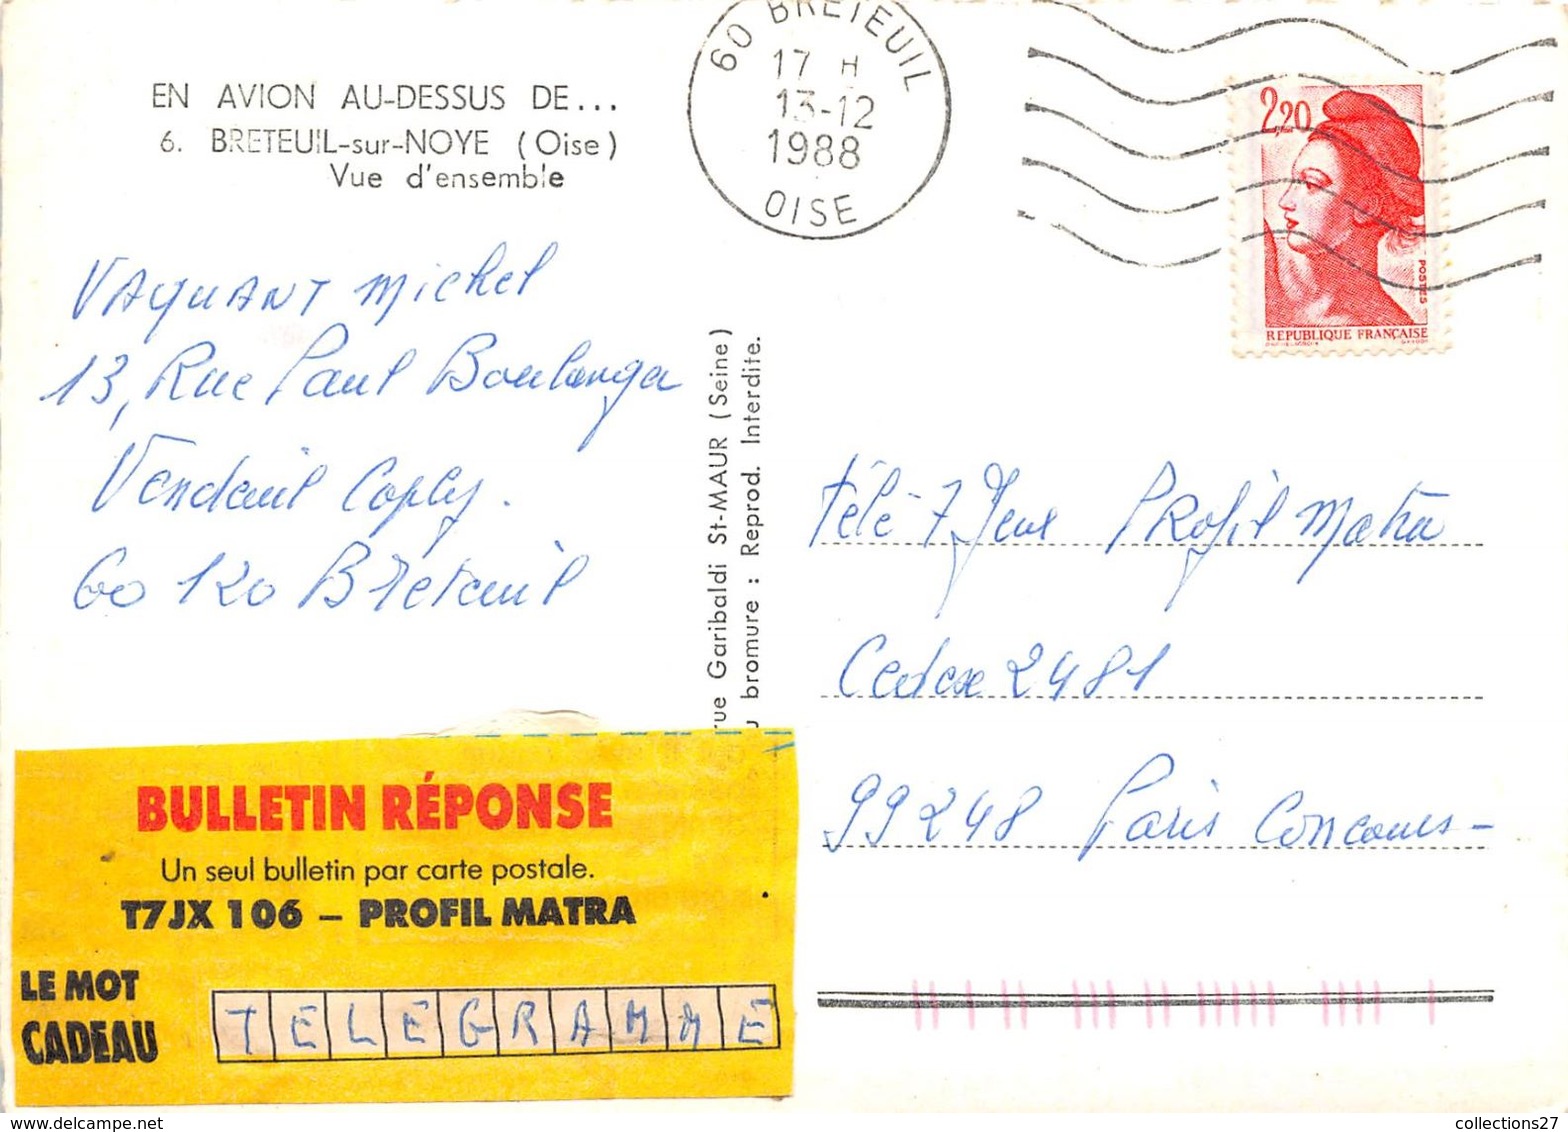 EN AVION AU-DESSUS DE...
6. BRETEUIL-sur-NOYE (Oise)
Vue d'ensemble
60 BRETEUIL
17 H
13-12
1988
OISE
2,20
POSTES
REPUBLIQUE FRANÇAISE
VAQUANT Michel
13, Rue Paul Boulanger
Vendeuil Caply.
60 120 Breteuil
rue Garibaldi St-MAUR (Seine)
u bromure : Reprod. Interdite.
Télé 7 Jeux Profil Matra
Cedex 2481
99248 Paris Concours-
BULLETIN RÉPONSE
Un seul bulletin par carte postale.
T7JX 106 – PROFIL MATRA
LE MOT
CADEAU
TELEGRAMME
collections27